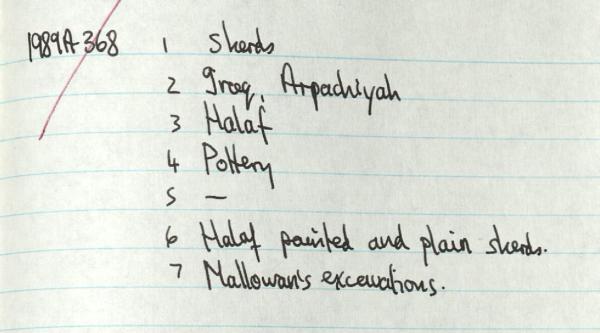 1989A368 1 Sherds
2 Iraq, Arpachiyah
3 Halaf
4 Pottery
5 —
6 Halaf painted and plain sherds.
7 Mallowan's excavations.